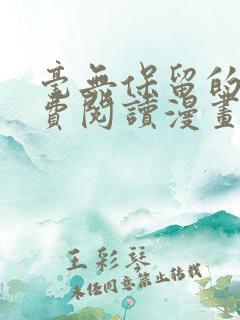 毫無保留的
費閱讀漫畫
王彩琴
未经同意禁止转载